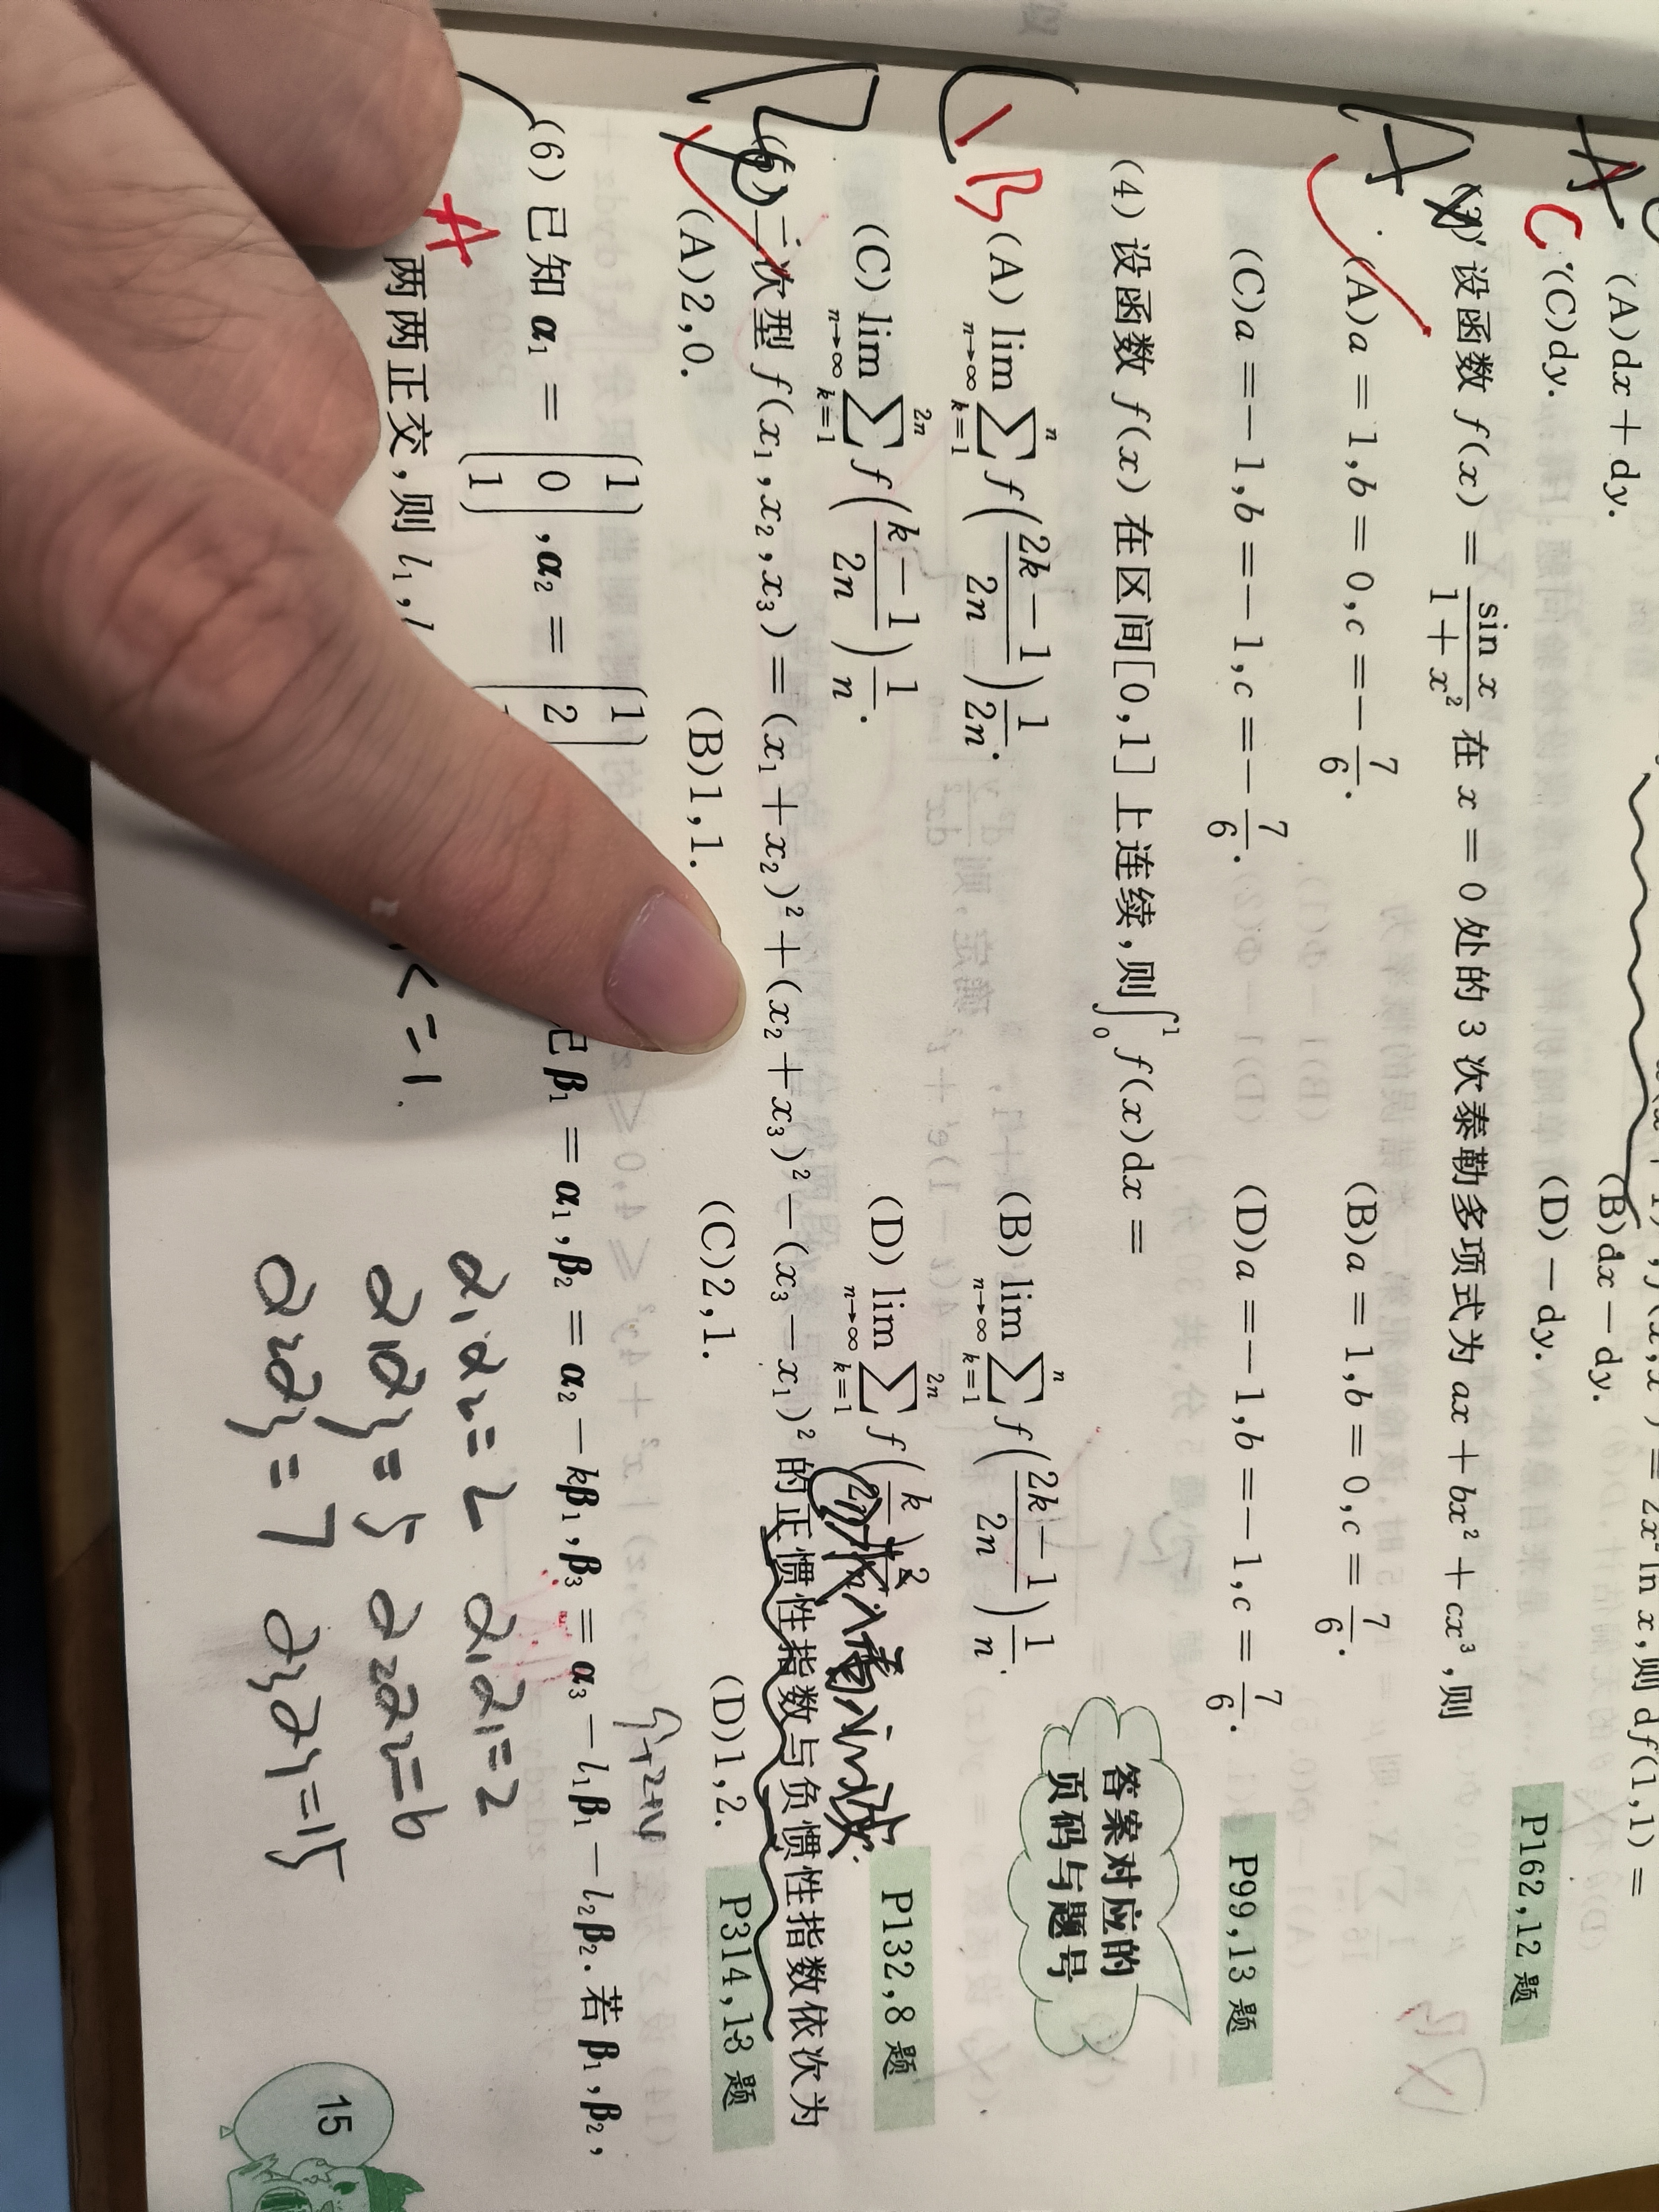 ) = 2x² ln x,则 df(1,1) =
(A)dx + dy.
(B)dx − dy.
(C)dy.
(D) − dy.
P162,12 题
A
C
(3) 设函数 f(x) = sin x / (1 + x²) 在 x = 0 处的 3 次泰勒多项式为 ax + bx² + cx³,则
A
(A)a = 1,b = 0,c = − 7/6.
(B)a = 1,b = 0,c = 7/6.
(C)a = − 1,b = − 1,c = − 7/6.
(D)a = − 1,b = − 1,c = 7/6.
P99,13 题
(4) 设函数 f(x) 在区间[0,1] 上连续,则∫₀¹ f(x)dx =
答案对应的
页码与题号
B
(A) lim n→∞ ∑ k=1 n f((2k − 1)/2n) 1/2n.
(B) lim n→∞ ∑ k=1 n f((2k − 1)/2n) 1/n.
(C) lim n→∞ ∑ k=1 2n f((k − 1)/2n) 1/n.
(D) lim n→∞ ∑ k=1 2n f(k/2n) 2/n
P132,8 题
(5) 二次型 f(x₁,x₂,x₃) = (x₁ + x₂)² + (x₂ + x₃)² − (x₃ − x₁)² 的正惯性指数与负惯性指数依次为
(A)2,0.
(B)1,1.
(C)2,1.
(D)1,2.
P314,13 题
(6) 已知 α₁ = (1 0 1) ,α₂ = (1 2
记 β₁ = α₁,β₂ = α₂ − kβ₁,β₃ = α₃ − l₁β₁ − l₂β₂. 若 β₁,β₂,
A
两两正交,则 l₁,l
k = 1.
α₁α₂ = 2 α₁α₁ = 2
α₁α₃ = 5 α₂α₂ = 6
α₂α₃ = 7 α₃α₃ = 15
15